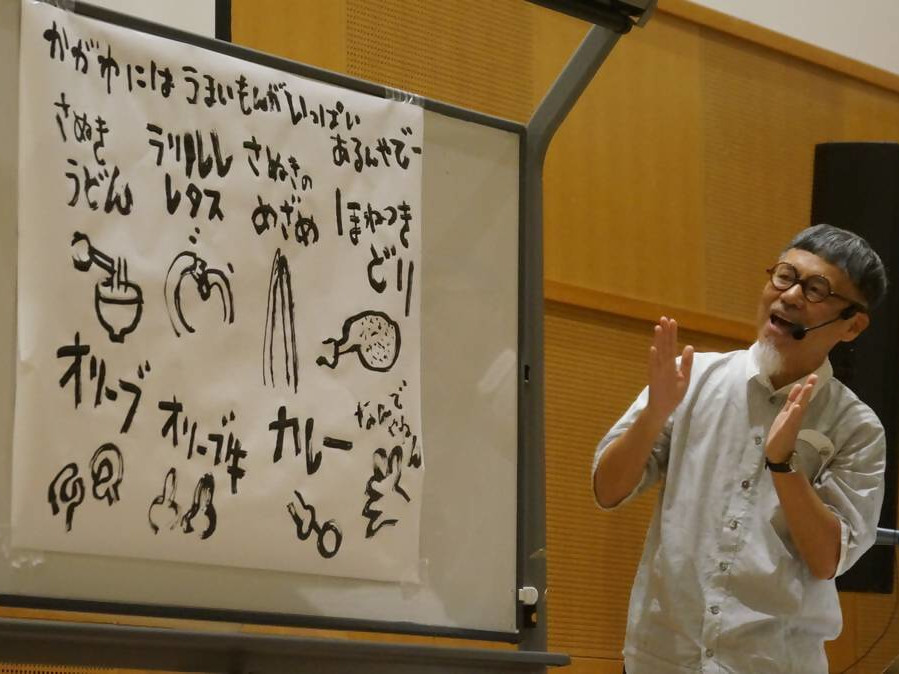 かがわにはうまいもんがいっぱい
あるんやでー
さぬき
うどん
ラリルレ
レタス
さぬきの
めざめ
ほねつき
どり
オリーブ
オリーブ牛
カレー
なんで